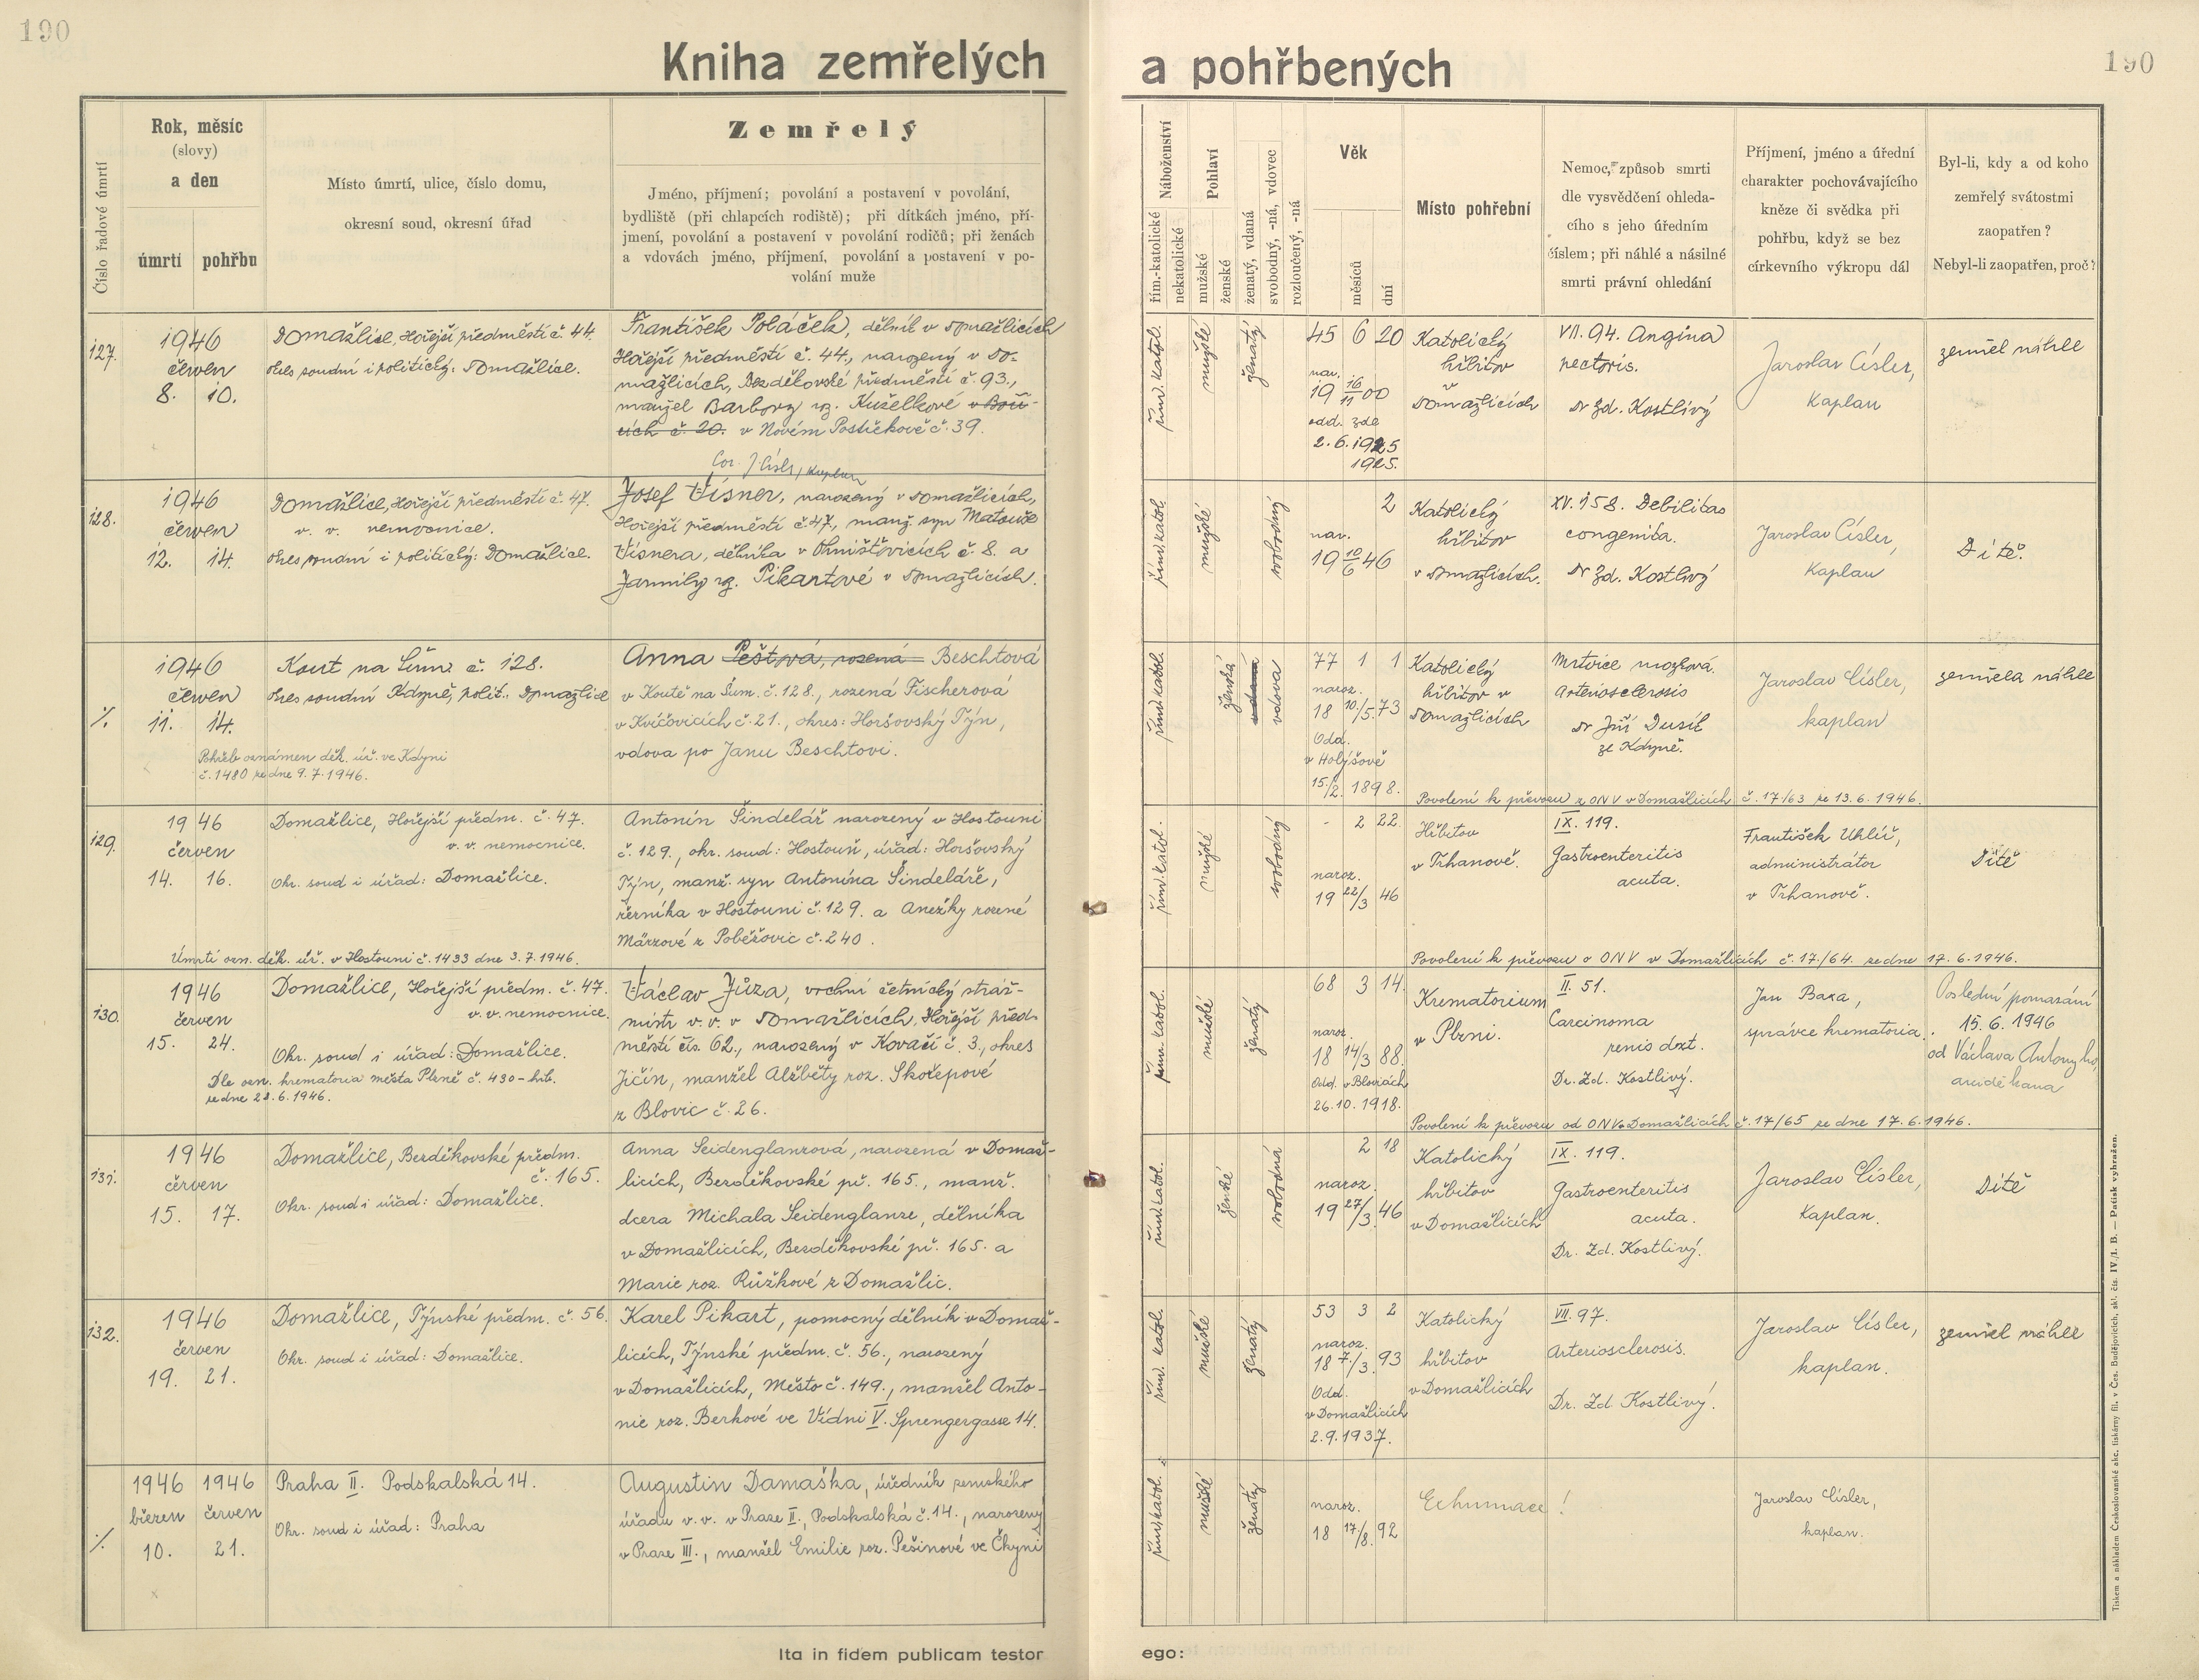 190
190
Kniha zemřelých
a pohřbených
Číslo řadové úmrtí
Rok, měsíc
(slovy)
a den
úmrtí
pohřbu
Místo úmrtí, ulice, číslo domu,
okresní soud, okresní úřad
Zemřelý
Jméno, příjmení; povolání a postavení v povolání,
bydliště (při chlapcích rodiště); při dítkách jméno, pří-
jmení, povolání a postavení v povolání rodičů; při ženách
a vdovách jméno, příjmení, povolání a postavení v po-
volání muže
Náboženství
řím.-katolické
nekatolické
Pohlaví
mužské
ženské
ženatý, vdaná
svobodný, -ná, vdovec
rozloučený, -ná
Věk
měsíců
dní
Místo pohřební
Nemoc, způsob smrti
dle vysvědčení ohleda-
cího s jeho úředním
číslem; při náhlé a násilné
smrti právní ohledání
Příjmení, jméno a úřední
charakter pochovávajícího
kněze či svědka při
pohřbu, když se bez
církevního výkropu dál
Byl-li, kdy a od koho
zemřelý svátostmi
zaopatřen?
Nebyl-li zaopatřen, proč?
127.
1946
červen
8. 10.
Domažlice, Hořejší předměstí č. 44.
Okres soudní i politický: Domažlice.
František Poláček, dělník v Domažlicích
Hořejší předměstí č. 44., narozený v Do-
mažlicích, Bezděkovské předměstí č. 93.,
manžel Barbory rz. Kuželkové v Boři-
cích č. 20. v Novém Postřekově č. 39.
Cor. J. Císler, kaplan
řím. katol.
mužské
ženatý
45 6 20
nar.
19 16/11 00
odd. zde
2. 6. 1925
1925.
Katolický
hřbitov
v
Domažlicích
VII. 94. Angina
pectoris.
Dr Zd. Kostlivý
Jaroslav Císler,
kaplan
zemřel náhle
128.
1946
červen
12. 14.
Domažlice, Hořejší předměstí č. 47.
v. v. nemocnice.
Okres soudní i politický: Domažlice.
Josef Vísner, narozený v Domažlicích,
Hořejší předměstí č. 47, manž. syn Matouše
Vísnera, dělníka v Ohnišťovicích č. 8. a
Jarmily rz. Pikartvé v Domažlicích.
řím. katol.
mužské
svobodný
2
nar.
19 10/6 46
Katolický
hřbitov
v Domažlicích.
XV. 158. Debilitas
congenita.
Dr Zd. Kostlivý
Jaroslav Císler,
kaplan
Dítě.
%
1946
červen
11. 14.
Kout na Šum. č. 128.
Okres soudní Kdyně, polit. Domažlice
Pohřeb oznámen děk. úř. ve Kdyni
č. 1480 ze dne 9. 7. 1946.
Anna Peštová, rozená Beschtová
v Koutě na Šum. č. 128., rozená Fischerová
v Kvíčovicích č. 21., okres: Horšovský Týn,
vdova po Janu Beschtovi.
řím. katol.
ženská
vdaná
vdova
77 1 1
naroz.
18 10/5. 73
Odd.
v Holýšově
15./2. 1898.
Katolický
hřbitov v
Domažlicích
Mrtvice mozková.
Arteriosclerosis
Dr Jiří Dusil
ze Kdyně.
Jaroslav Císler,
kaplan
zemřela náhle
Povolení k převozu z ONV v Domažlicích č. 17/63 ze 13. 6. 1946.
129.
1946
červen
14. 16.
Domažlice, Hořejší předm. č. 47.
v. v. nemocnice.
Okr. soud i úřad: Domažlice.
Úmrtí ozn. děk. úř. v Hostouni č. 1433 dne 3. 7. 1946.
Antonín Šindelář narozený v Hostouni
č. 129., okr. soud: Hostouň, úřad: Horšovský
Týn, manž. syn Antonína Šindeláře,
řezníka v Hostouni č. 129. a Anežky rozené
Märzové z Poběžovic č. 240.
řím. katol.
mužské
svobodný
- 2 22
naroz.
19 22/3 46
Hřbitov
v Trhanově.
IX. 119.
Gastroenteritis
acuta.
František Uhlíř,
administrátor
v Trhanově.
Dítě
Povolení k převozu o ONV v Domažlicích č. 17/64. ze dne 17. 6. 1946.
130.
1946
červen
15. 24.
Domažlice, Hořejší předm. č. 47.
v. v. nemocnice.
Okr. soud i úřad: Domažlice.
Dle ozn. krematoria města Plzně č. 430-hřb.
ze dne 28. 6. 1946.
Václav Jůza, vrchní četnický stráž-
mistr v. v. v Domažlicích, Hořejší před-
městí čís. 62., narozený v Kovači č. 3., okres
Jičín, manžel Alžběty roz. Skořepové
z Blovic č. 26.
řím. katol.
mužské
ženatý
68 3 14.
naroz.
18 14/3 88.
Odd. v Blovicích
26. 10. 1918.
Krematorium
v Plzni.
II. 51.
Carcinoma
penis dxt.
Dr. Zd. Kostlivý.
Jan Baxa,
správce krematoria.
Poslední pomazání
15. 6. 1946
od Václava Antonyho,
arciděkana
Povolení k převozu od ONV v Domažlicích č. 17/65 ze dne 17. 6. 1946.
131.
1946
červen
15. 17.
Domažlice, Bezděkovské předm.
č. 165.
Okr. soud i úřad: Domažlice.
Anna Seidenglanzová, narozená v Domaž-
licích, Bezděkovské př. 165., manž.
dcera Michala Seidenglanze, dělníka
v Domažlicích, Bezděkovské př. 165. a
Marie roz. Růžkové z Domažlic.
řím. katol.
ženské
svobodná
2 18
naroz.
19 27/3. 46
Katolický
hřbitov
v Domažlicích
IX. 119.
Gastroenteritis
acuta.
Dr. Zd. Kostlivý.
Jaroslav Císler,
kaplan.
Dítě
132.
1946
červen
19. 21.
Domažlice, Týnské předm. č. 56.
Okr. soud i úřad: Domažlice.
Karel Pikart, pomocný dělník v Domaž-
licích, Týnské předm. č. 56., narozený
v Domažlicích, Město č. 149., manžel Anto-
nie roz. Berkové ve Vídni V. Sprengergasse 14.
řím. katol.
mužské
ženatý
53 3 2
naroz.
18 7/3. 93
Odd.
v Domažlicích
2. 9. 1937.
Katolický
hřbitov
v Domažlicích
VII. 97.
Arteriosclerosis.
Dr. Zd. Kostlivý.
Jaroslav Císler,
kaplan.
zemřel náhle
%
1946 1946
březen červen
10. 21.
Praha II. Podskalská 14.
Okr. soud i úřad: Praha
Augustin Damaška, úředník zemského
úřadu v. v. v Praze II., Podskalská č. 14., narozený
v Praze III., manžel Emilie roz. Pešinové ve Čkyni
řím. katol.
mužské
ženatý
naroz.
18 17/8. 92
Exhumace!
Jaroslav Císler,
kaplan.
Ita in fidem publicam testor
ego:
Tiskem a nákladem Československé akc. tiskárny fil. v Čes. Budějovicích, skl. čís. IV./1. B. — Patisk vyhražen.